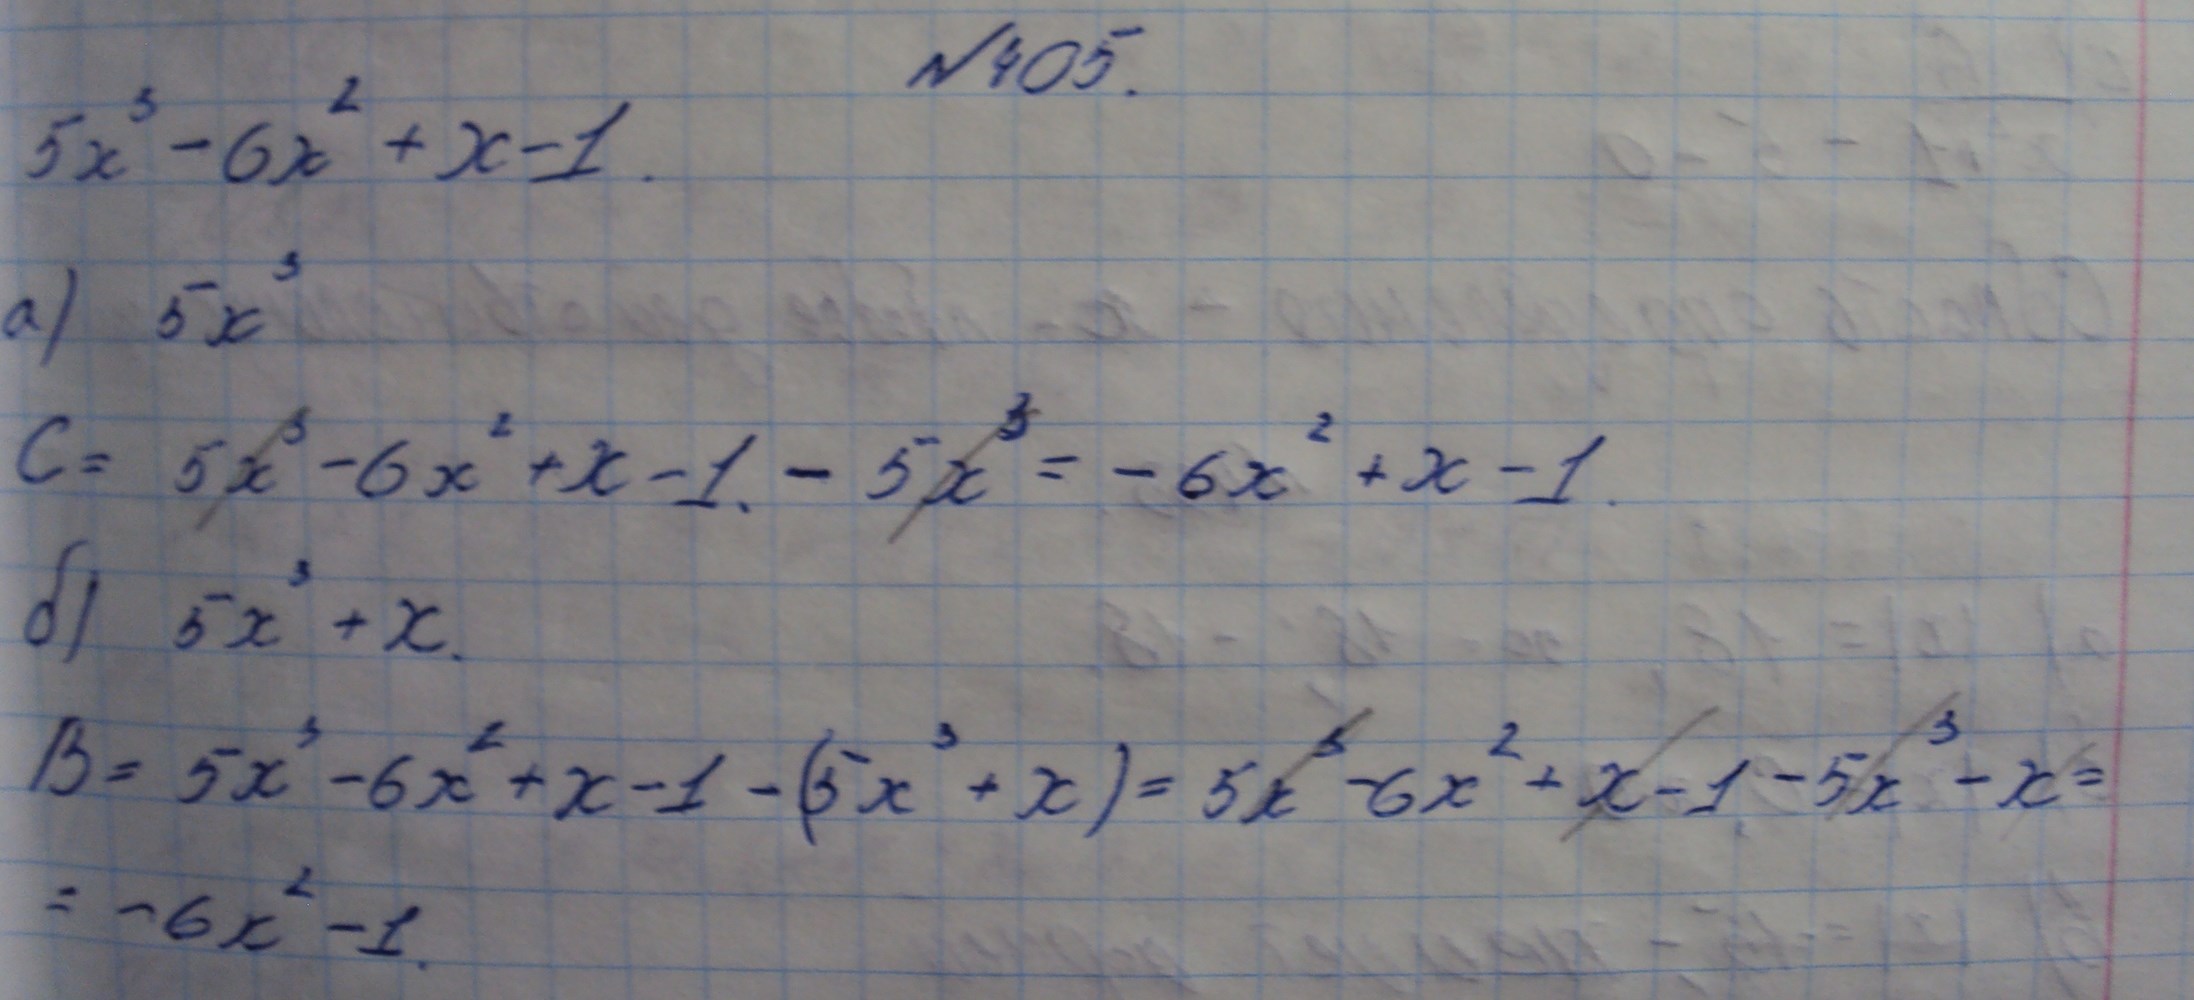 №405.
5x³ - 6x² + x - 1.
а) 5x³
C = 5x³ - 6x² + x - 1. - 5x³ = - 6x² + x - 1.
б) 5x³ + x.
B = 5x³ - 6x² + x - 1 - (5x³ + x) = 5x³ - 6x² + x - 1 - 5x³ - x =
= - 6x² - 1.